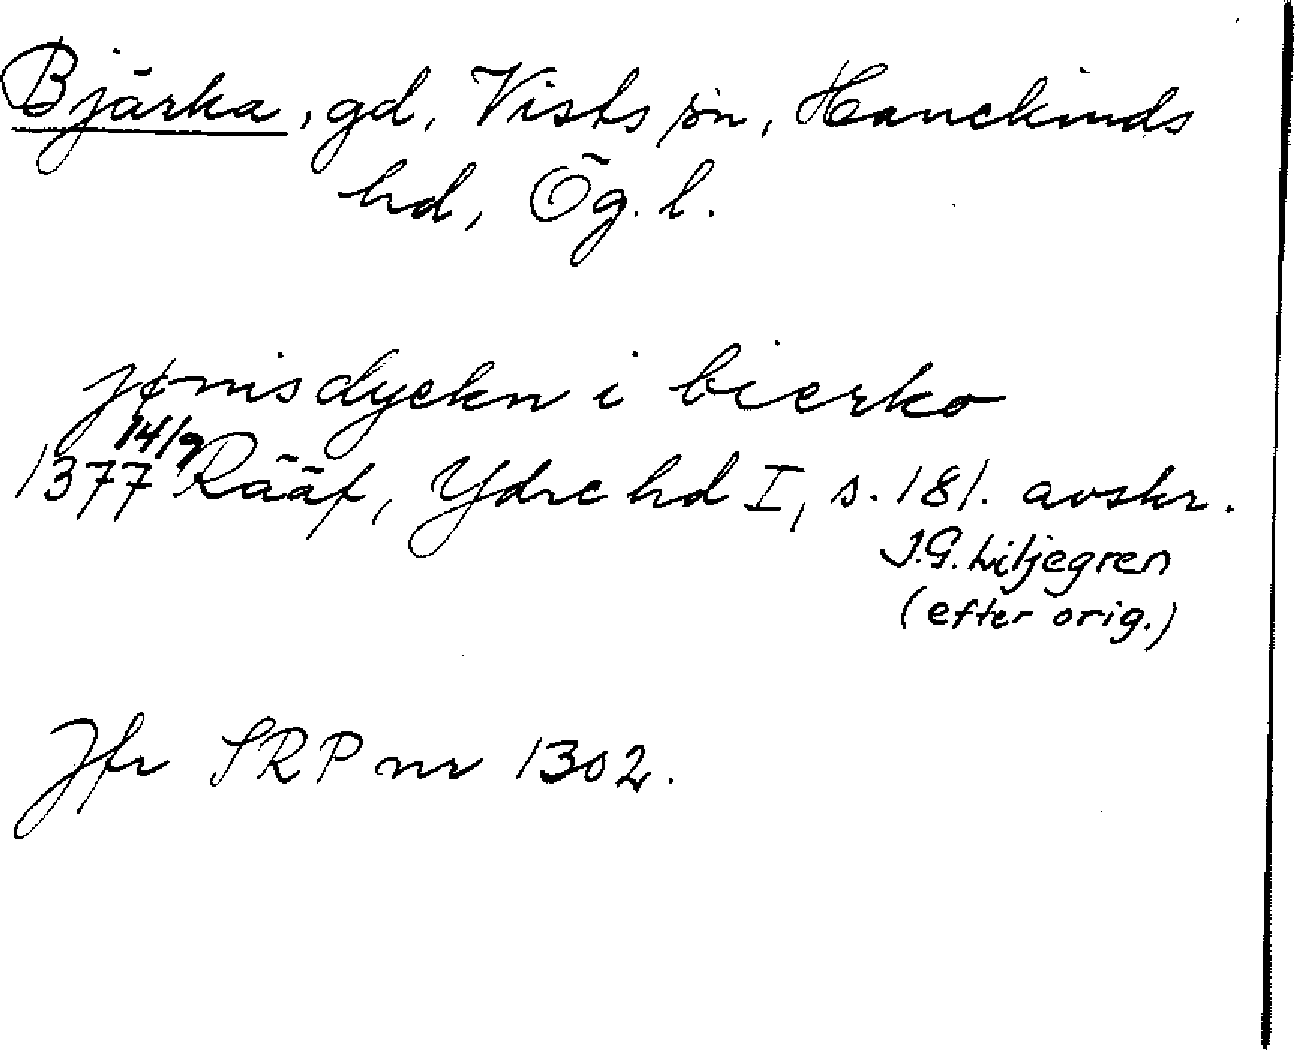 Bjärka, gd, Vists sn, Hanekinds
hd, Ög. l.
jønis dyekn i bierko
1377 14/9 Rääf, Ydre hd I, s. 181. avskr.
J.G. Liljegren
(efter orig.)
Jfr SRP nr 1302.